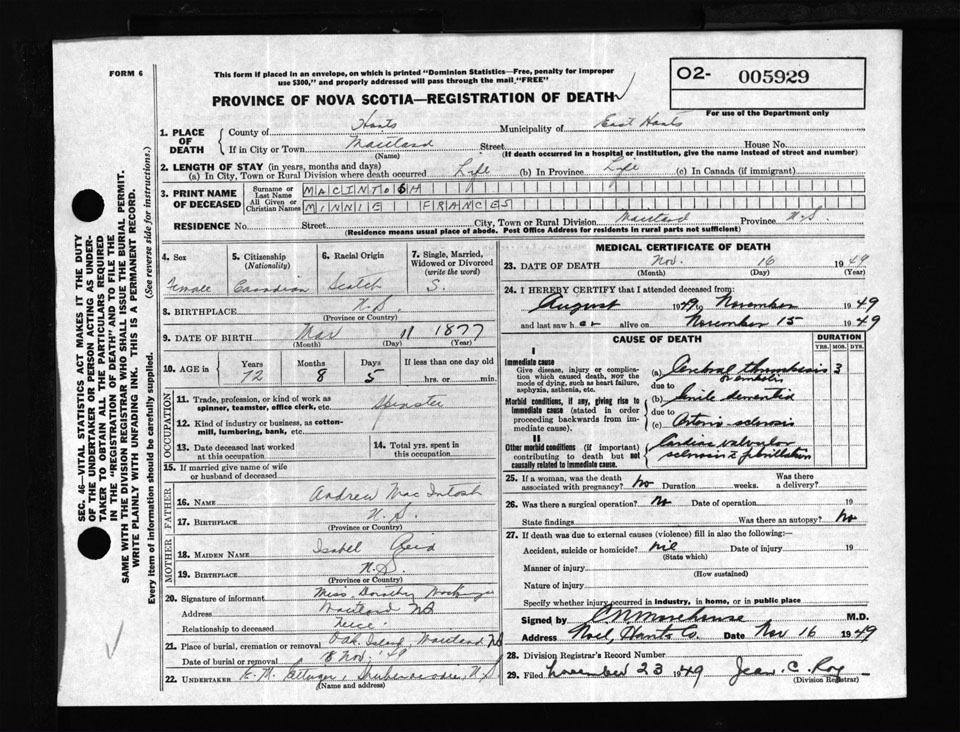 FORM 6
This form if placed in an envelope, on which is printed "Dominion Statistics—Free, penalty for improper
use $300," and properly addressed will pass through the mail "FREE"
O2- 005929
PROVINCE OF NOVA SCOTIA—REGISTRATION OF DEATH
For use of the Department only
1. PLACE OF DEATH
County of Hants Municipality of East Hants
If in City or Town Maitland Street House No.
(Name) (If death occurred in a hospital or institution, give the name instead of street and number)
2. LENGTH OF STAY (in years, months and days)
(a) In City, Town or Rural Division where death occurred Life (b) In Province Life (c) In Canada (if immigrant)
3. PRINT NAME OF DECEASED
Surname or Last Name MACINTOSH
All Given or Christian Names MINNIE FRANCES
RESIDENCE No. Street City, Town or Rural Division Maitland Province N.S.
(Residence means usual place of abode. Post Office Address for residents in rural parts not sufficient)
4. Sex Female
5. Citizenship (Nationality) Canadian
6. Racial Origin Scotch
7. Single, Married, Widowed or Divorced (write the word) S.
8. BIRTHPLACE N.S.
(Province or Country)
9. DATE OF BIRTH Mar 11 1877
(Month) (Day) (Year)
10. AGE in Years 72 Months 8 Days 5 If less than one day old hrs. or min.
OCCUPATION
11. Trade, profession, or kind of work as spinner, teamster, office clerk, etc. Spinster
12. Kind of industry or business, as cotton-mill, lumbering, bank, etc.
13. Date deceased last worked at this occupation
14. Total yrs. spent in this occupation
15. If married give name of wife or husband of deceased
FATHER
16. NAME Andrew MacIntosh
17. BIRTHPLACE N.S.
(Province or Country)
MOTHER
18. MAIDEN NAME Isabel Reid
19. BIRTHPLACE N.S.
(Province or Country)
20. Signature of informant Miss Dorothy
Address Maitland NS
Relationship to deceased Neice
21. Place of burial, cremation or removal Oak Island, Maitland NS
Date of burial or removal 18 Nov. '49
22. UNDERTAKER E. M. Shubenacadie, N.S.
(Name and address)
MEDICAL CERTIFICATE OF DEATH
23. DATE OF DEATH Nov. 16 1949
(Month) (Day) (Year)
24. I HEREBY CERTIFY that I attended deceased from:
August 1949 to November 1949
and last saw her alive on November 15 1949
CAUSE OF DEATH
DURATION
YRS. MOS. DYS.
I
Immediate cause
Give disease, injury or complication which caused death, NOT the mode of dying, such as heart failure, asphyxia, asthenia, etc.
(a) Cerebral thrombosis or embolis 3
due to
Morbid conditions, if any, giving rise to immediate cause (stated in order proceeding backwards from immediate cause).
(b) Senile dementia
due to
(c) Arterio-sclerosis
II
Other morbid conditions (if important) contributing to death but not causally related to immediate cause.
Cardiac valvular sclerosis c̄ fibrillation
25. If a woman, was the death associated with pregnancy? No Duration weeks. Was there a delivery?
26. Was there a surgical operation? No Date of operation 19
State findings Was there an autopsy? No
27. If death was due to external causes (violence) fill in also the following:—
Accident, suicide or homicide? nil Date of injury 19
(State which)
Manner of injury
(How sustained)
Nature of injury
Specify whether injury occurred in industry, in home, or in public place
Signed by M.D.
Address Noel, Hants Co. Date Nov 16 1949
28. Division Registrar's Record Number
29. Filed November 23 1949 Jean C. Roy
(Division Registrar)
SEC. 46—VITAL STATISTICS ACT MAKES IT THE DUTY
OF THE UNDERTAKER OR PERSON ACTING AS UNDER-
TAKER TO OBTAIN ALL THE PARTICULARS REQUIRED
IN THE "REGISTRATION OF DEATH" AND TO FILE THE
SAME WITH THE DIVISION REGISTRAR WHO SHALL ISSUE THE BURIAL PERMIT.
WRITE PLAINLY WITH UNFADING INK. THIS IS A PERMANENT RECORD.
Every item of information should be carefully supplied. (See reverse side for instructions.)